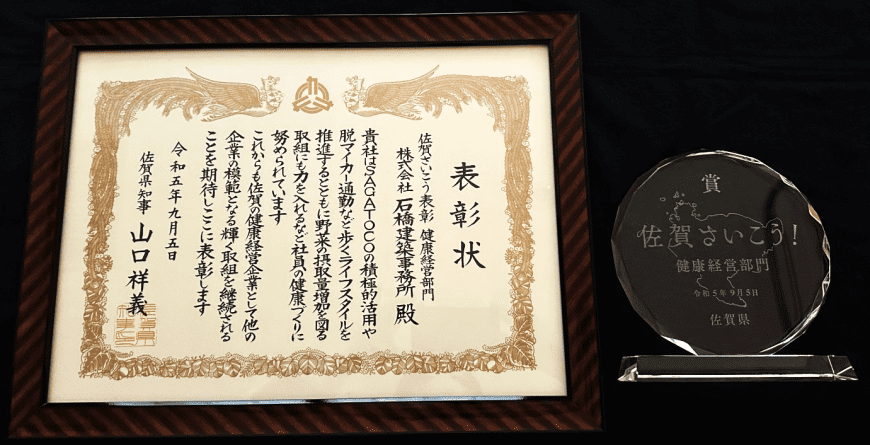 表彰状
佐賀さいこう表彰 健康経営部門
株式会社 石橋建築事務所 殿
貴社はSAGATOCOの積極的活用や
脱マイカー通勤など歩くライフスタイルを
推進するとともに野菜の摂取量増加を図る
取組にも力を入れるなど社員の健康づくりに
努められています
これからも佐賀の健康経営企業として他の
企業の模範となる輝く取組を継続される
ことを期待しここに表彰します
令和五年九月五日
佐賀県知事 山口祥義
賞
佐賀さいこう!
健康経営部門
令和5年9月5日
佐賀県